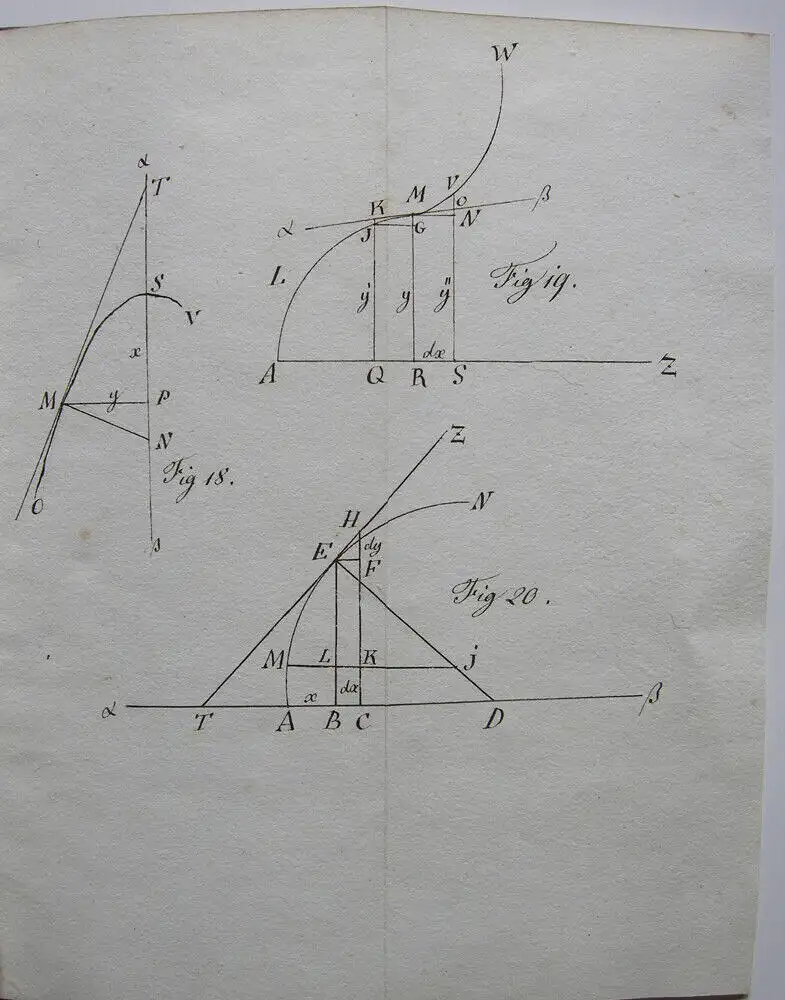 α
T
S
V
x
M y P
N
Fig 18.
O
β
W
K M V
α J G O N β
L
y' y y''
Fig 19.
dx
A Q R S Z
Z
H N
E dy
F
Fig 20.
M L K j
α x dx β
T A B C D